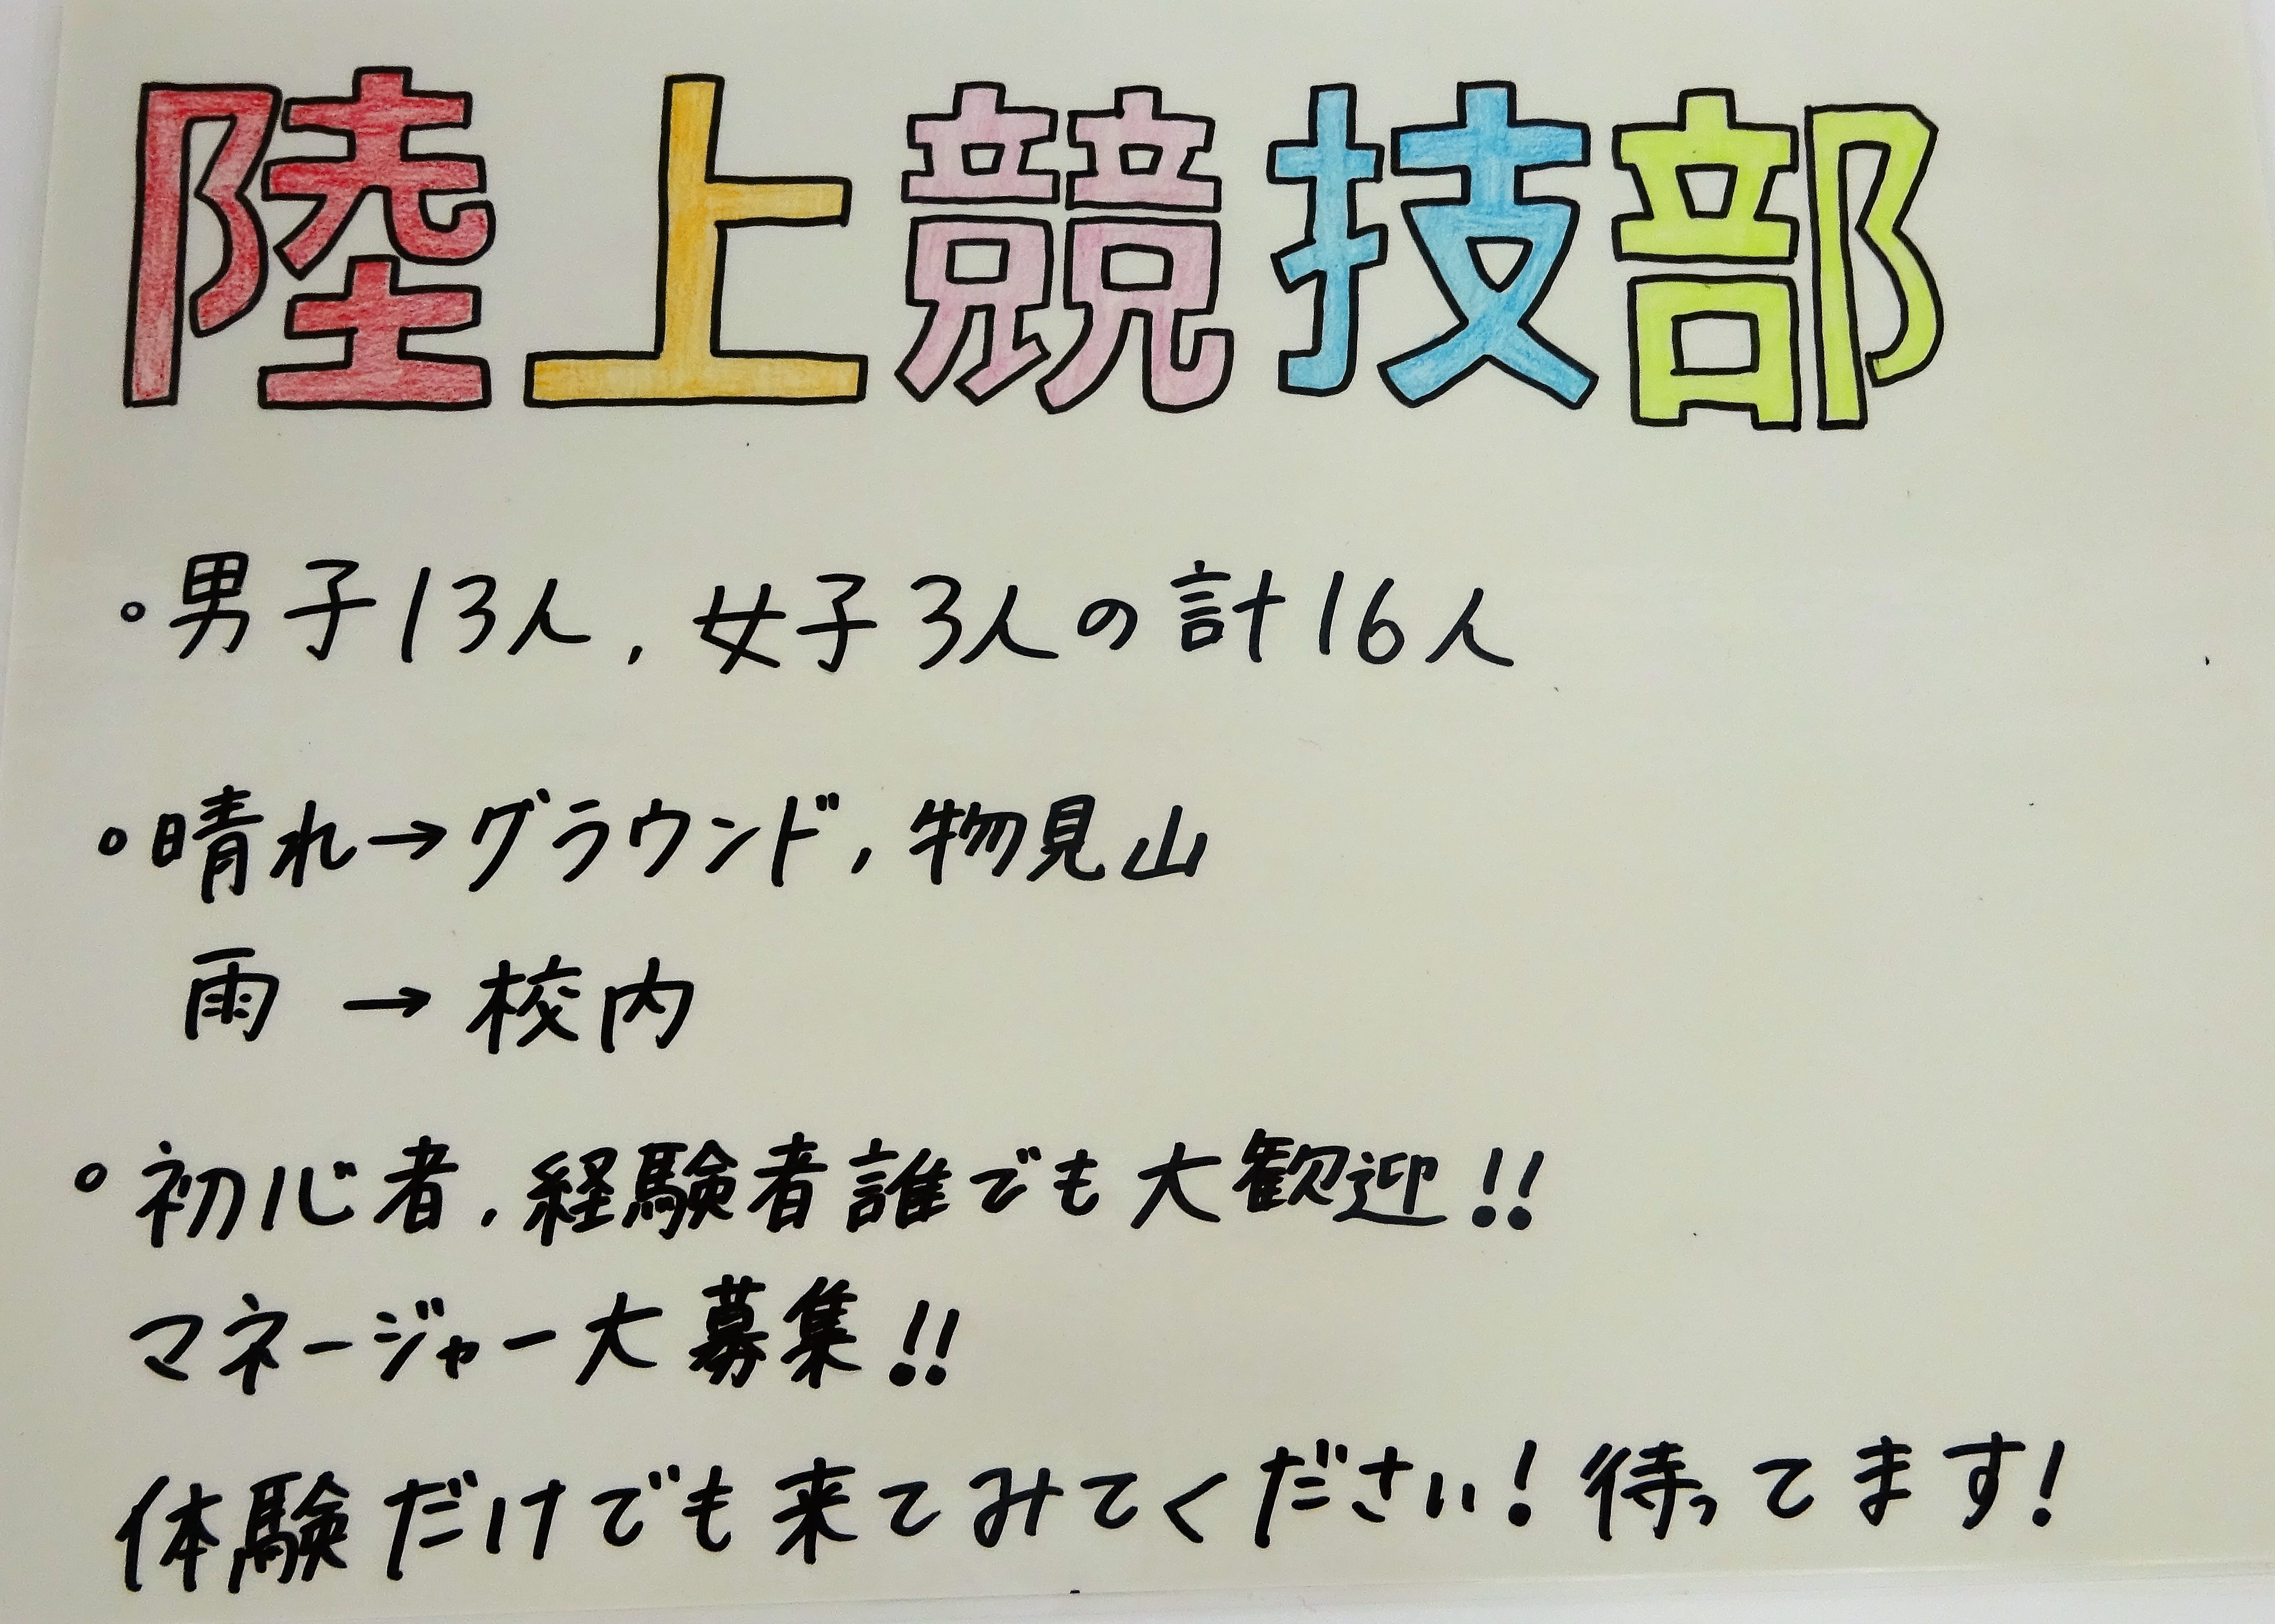 陸上競技部
◦男子13人, 女子3人の計16人
◦晴れ→グラウンド, 物見山
雨 → 校内
◦初心者, 経験者誰でも大歓迎!!
マネージャー大募集!!
体験だけでも来てみてください! 待ってます!